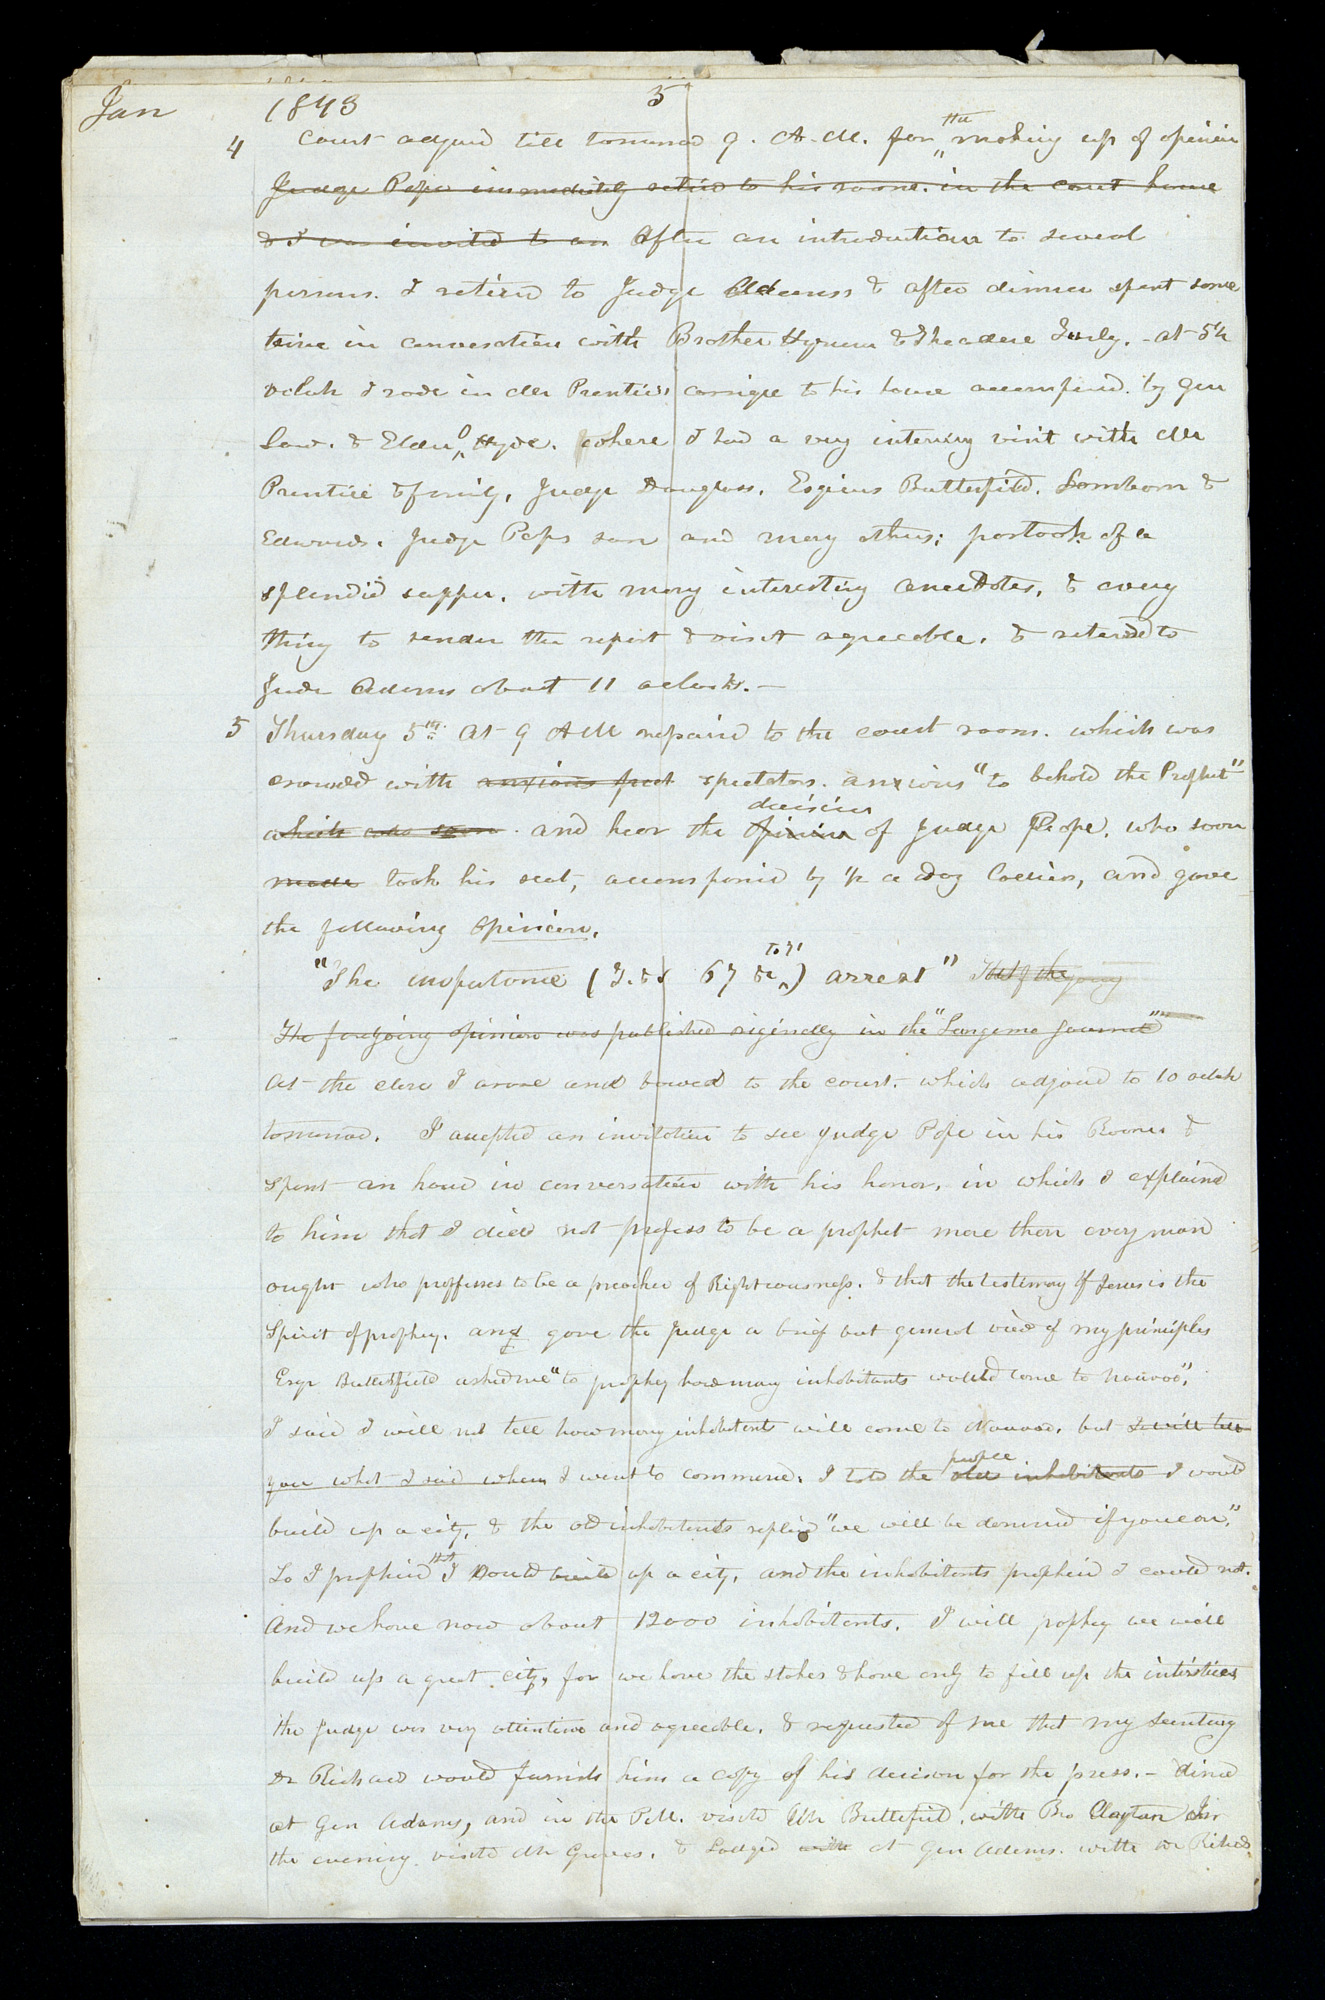 Jan 1843 5
4 Court adjourd till tomorrow 9. A.M. for the making up of opinion
Judge Pope immediately retired to his room. in the court house
& I was invited to an After an introduction to several
persons. I retired to Judge Adamss & after dinner spent some
time in conversation with Brother Hyrum & Theodore Turly. - at 5½
oclok I rode in Mr Prentices carrige to his house accompnied. by Gen
Law. & Elder O Hyde. where I had a very interesting visit with Mr
Prentice & family, Judge Douglass, Esqiers Butterfield. Lamborn &
Edwards. Judge Popes son and many others; partook of a
splendid supper. with many interesting anecdotes, & every
thing to render the repast & visit agreeable. & returned to
Jude Adams about 11 oclock. —
5 Thursday 5th. At 9 A M repaired to the court room. which was
crowded with anxious spectators. anxious "to behold the Prophet"
which was soon and hear the opinion decision of Judge Pope, who soon
made took his seat, accompanied by ½ a doz Ladies, and gave
the following Opinion.
"The importance (T. & S 67 to 71) arrest" The foregoing
The foregoing opinion was published originally in the "Sangamo Journal"
At the close I arose and bowed to the court. which adjourd to 10 oclok
tomorrow. I accepted an invitation to see Judge Pope in his Room &
spent an hour in conversation with his honor, in which I explained
to him that I did not profess to be a prophet more than every man
ought who professes to be a preacher of Righteousness. & that the testimony of Jesus is the
Spirit of prophey. and gave the Judge a brief but general view of my principles
Esqr Butterfield asked me "to prophey how many inhabitants would come to Nauvoo",
I said I will not tell how many inhabitants will come to Nauvoo, but I will tell
you what I said when I went to commerce. I told the old inhabitants people I would
build up a city, & the old inhabitants replied "we will be damned if you can,"
So I prophied that I would build up a city, and the inhabitants prophied I could not.
And we have now about 12000 inhabitants. I will prophey we will
build up a great city, for we have the stakes & have only to fill up the interstices
the Judge was very attentive and agreeable. & requested of me that my secretary
Dr Richard would furnish him a copy of his decison for the press. — dined
at Gen Adams, and in the P.M. visited Mr Butterfield. with Bro Clayton In
the evening visited Mr Groves. & Lodged with at Gen Adams. with Dr Richards